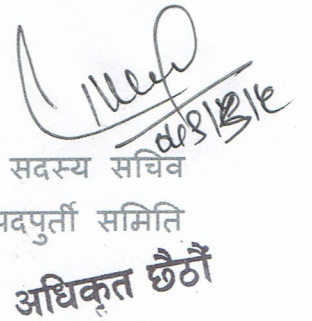 सदस्य सचिव
पदपुर्ती समिति
अधिकृत छैठौं